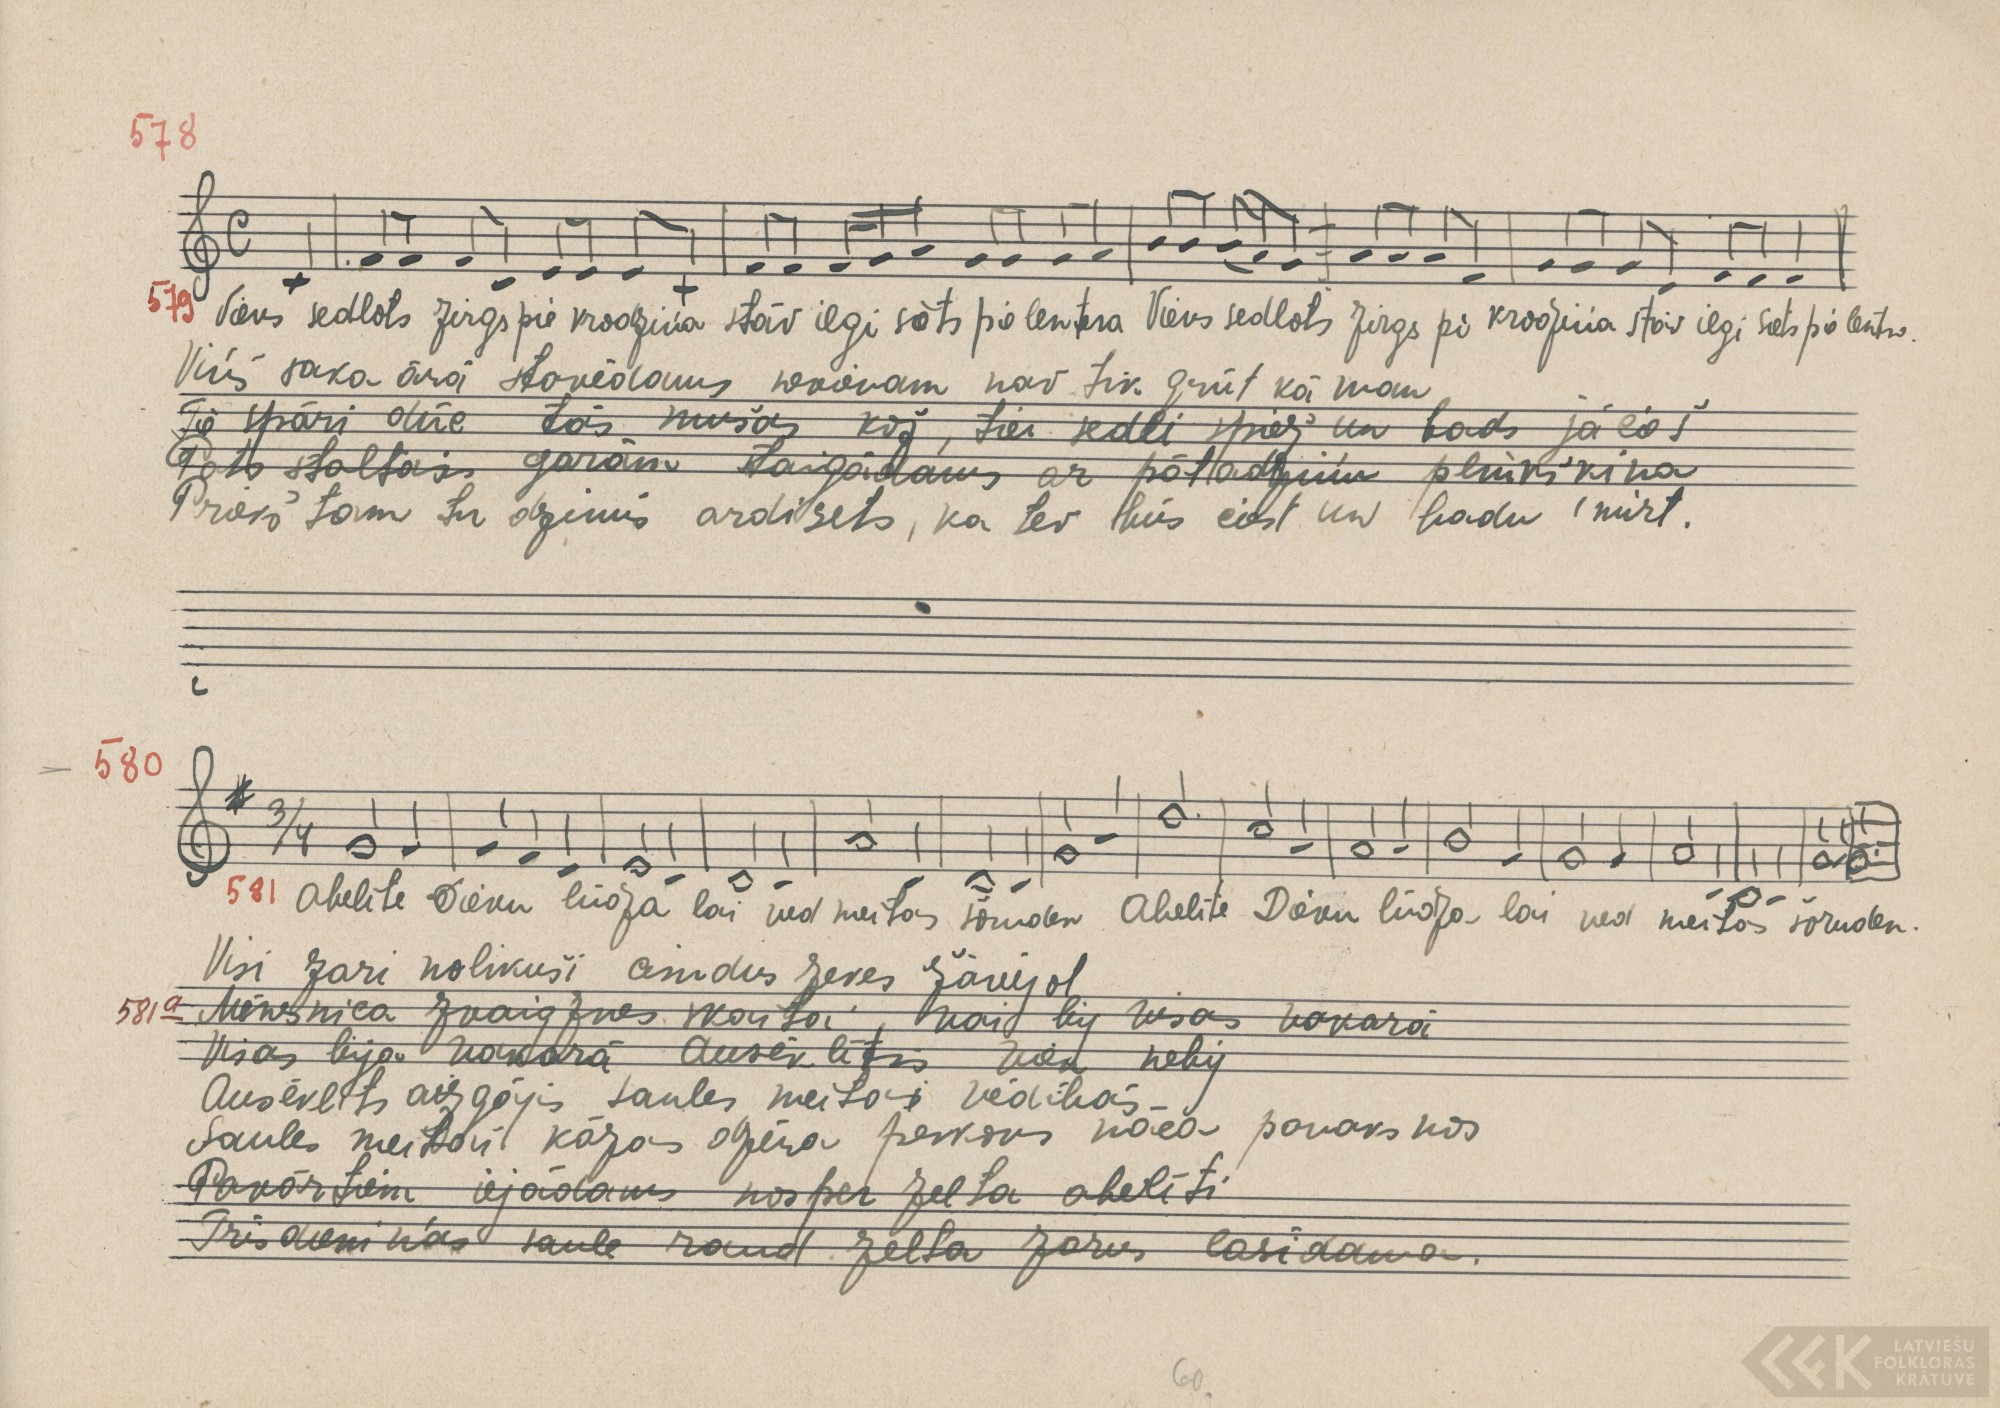 578
579 Viens sedlots zirgs pie krodziņa stāv ilgi sēts pie lentera Viens sedlots zirgs pi krodziņa stāv ilgi sets pie lentr.
Viņš saka ārā stovēdams nevienam nav tik grūt kā man
Tie spāri dūre tās mušas kož, tie sedli spiež un bads jācieš
Pats staltais garām staigādams ar pātadziņu plinkšķina
Priekš tam tu dzimis ardizets, ka tev būs ciest un badu mirt.
580
3/4
581 Abelīte Dievu lūdza lai ved meitas šoruden Abelīte Dievu lūdza lai ved meitas šoruden.
Visi zari nolikuši zeķes žāvējot
581a Mēnesnica zvaigznes skaita, vai bij visas vakarā
Visas bija vakarā Ausēklītis vien nebij
Ausēklīts aizgājis saules meitas vēdībās
Saules meitai kāzas dzēra perkons nāca panaksnos
Pavārtiem iejādams nosper zelta abelīti
Trīs dieniņas saule raud zelta zarus lasīdama.
60.
LATVIEŠU
FOLKLORAS
KRĀTUVE